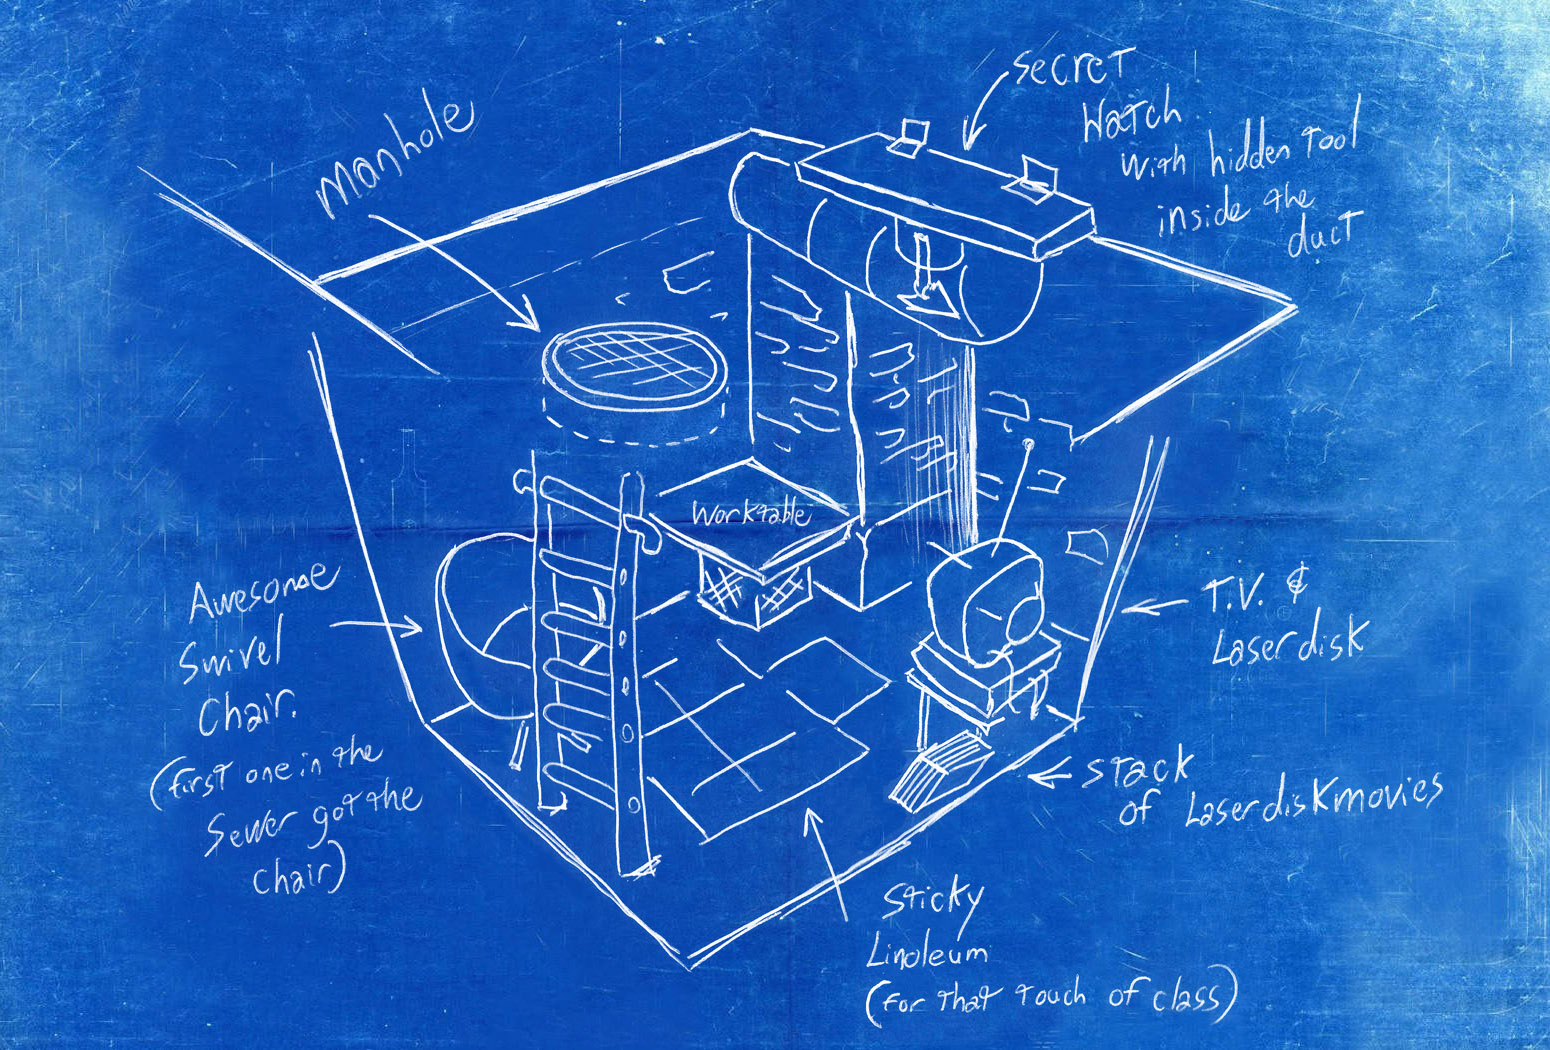 Manhole
Secret
Watch
with hidden tool
inside the
duct
Worktable
Awesome
Swivel
Chair.
(first one in the
Sewer got the
chair)
T.V. &
Laserdisk
Stack
of Laserdisk movies
Sticky
Linoleum
(for that touch of class)